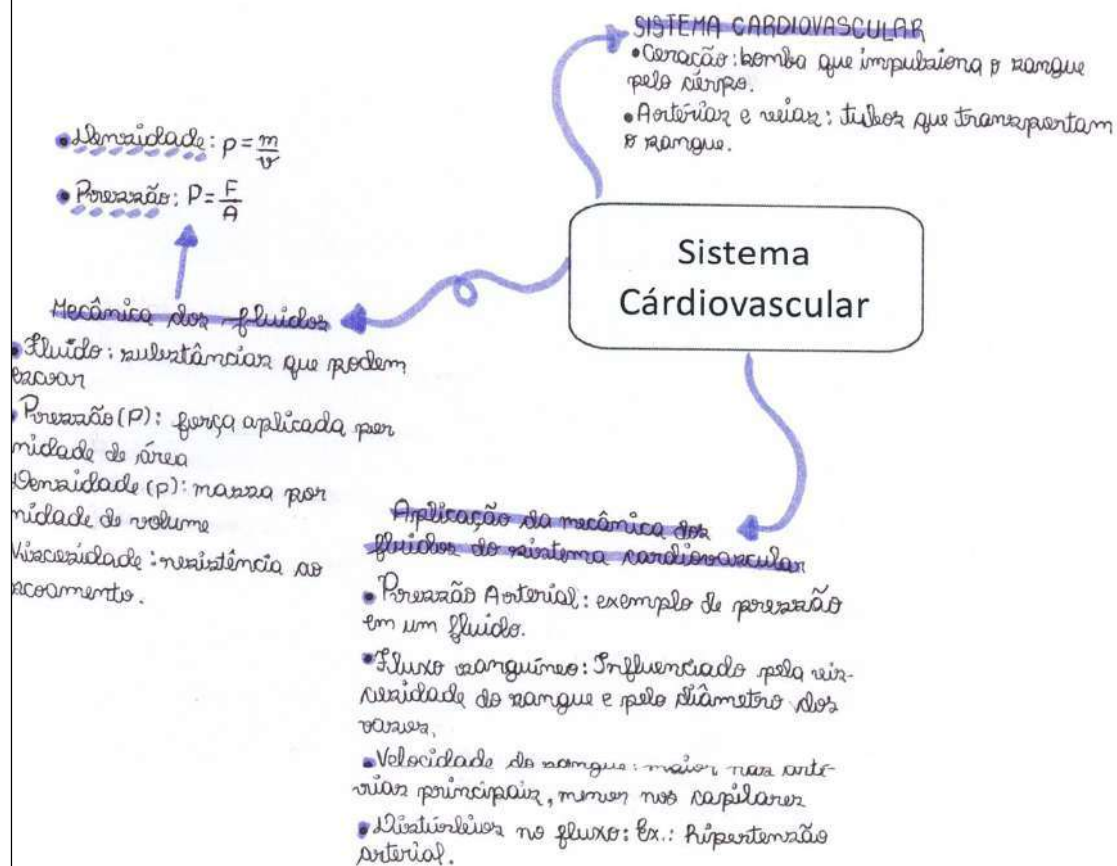 SISTEMA CARDIOVASCULAR
•Coração: bomba que impulsiona o sangue
pelo corpo.
•Artérias e veias: tubos que transportam
o sangue.
•Densidade: p = m/v
•Pressão: P = F/A
Sistema
Cárdiovascular
Mecânica dos fluidos
•Fluído: substâncias que podem
escoar
•Pressão (P): força aplicada por
nidade de área
Densidade (p): massa por
nidade de volume
Viscosidade: resistência ao
scoamento.
Aplicação da mecânica dos
fluidos do sistema cardiovascular
•Pressão Arterial: exemplo de pressão
em um fluido.
•Fluxo sanguíneo: Influenciado pela vis-
cosidade do sangue e pelo diâmetro dos
vasos.
•Velocidade do sangue: maior nas arté-
rias principais, menor nos capilares
•Distúrbios no fluxo: Ex.: hipertensão
arterial.